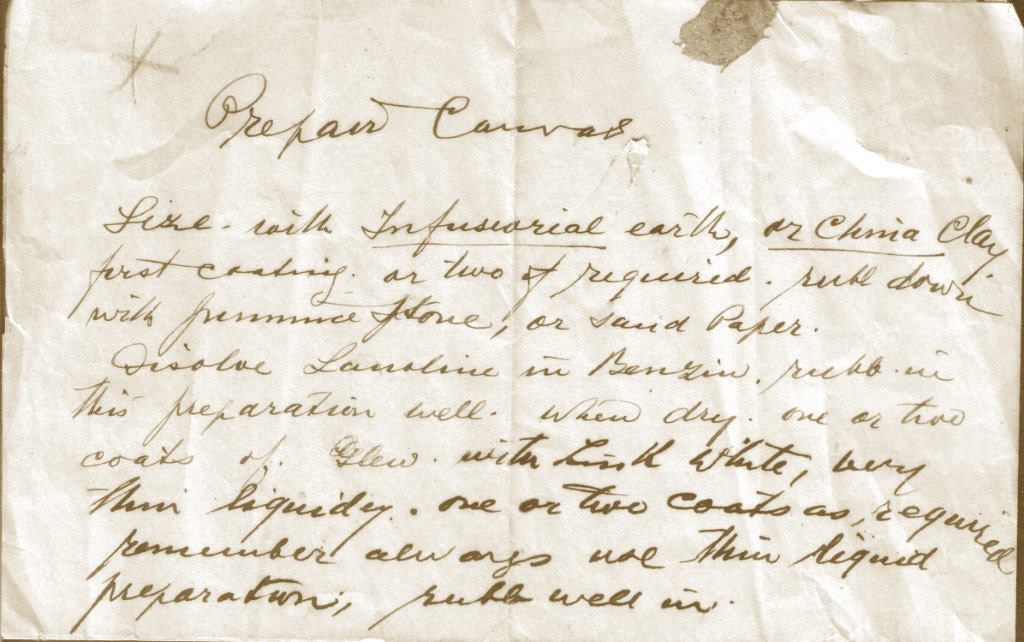 Prepair Canvas
Size. with Infusiorial earth, or China Clay.
first coating. or two if required. rubb down
with pummice Stone, or sand Paper.
Disolve Lanoline in Benzin. rubb in
this preparation well. when dry. one or two
coats of. Glew. with Zink White, very
thin liquidy. one or two coats as, required
remember always use thin liquid
preparation, rubb well in.